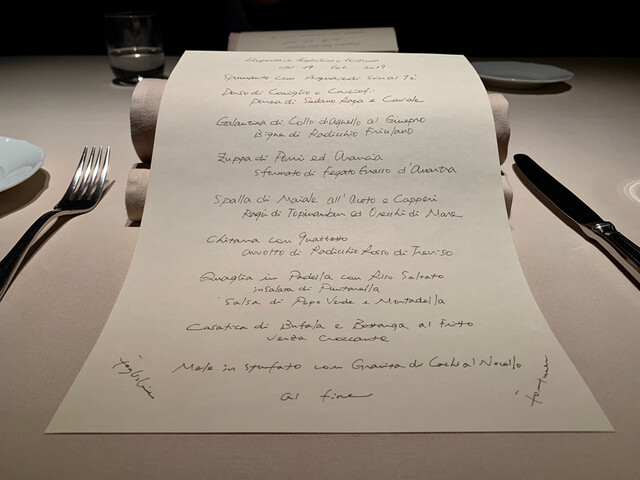 del 19 Feb. 2019
Spumante con Acquavedi Erin al Tè
Dorso di Coniglio e Carciofi
Purea di Sedano Rapa e Caviale
Galantina di Collo d'agnello al Ginepro
Bignè di Radicchio Friulano
Zuppa di Porri ed Arancia
sformato di Fegato Grasso d'Anantra
Spalla di Maiale all'Aceto e Capperi
Ragù di Topinambur ed Orecchi di Mare
Chitarra con
avvolto di Radicchio Rosso di Treviso
Quaglia in Padella con Riso Saltato
insalata di Puntarella
Salsa di Pepe Verde e Mortadella
Casatica di Bufala e Bottarga al Fritto
Verza Croccante
Mele in stufato con Granita di Cachi al Novello
al fine